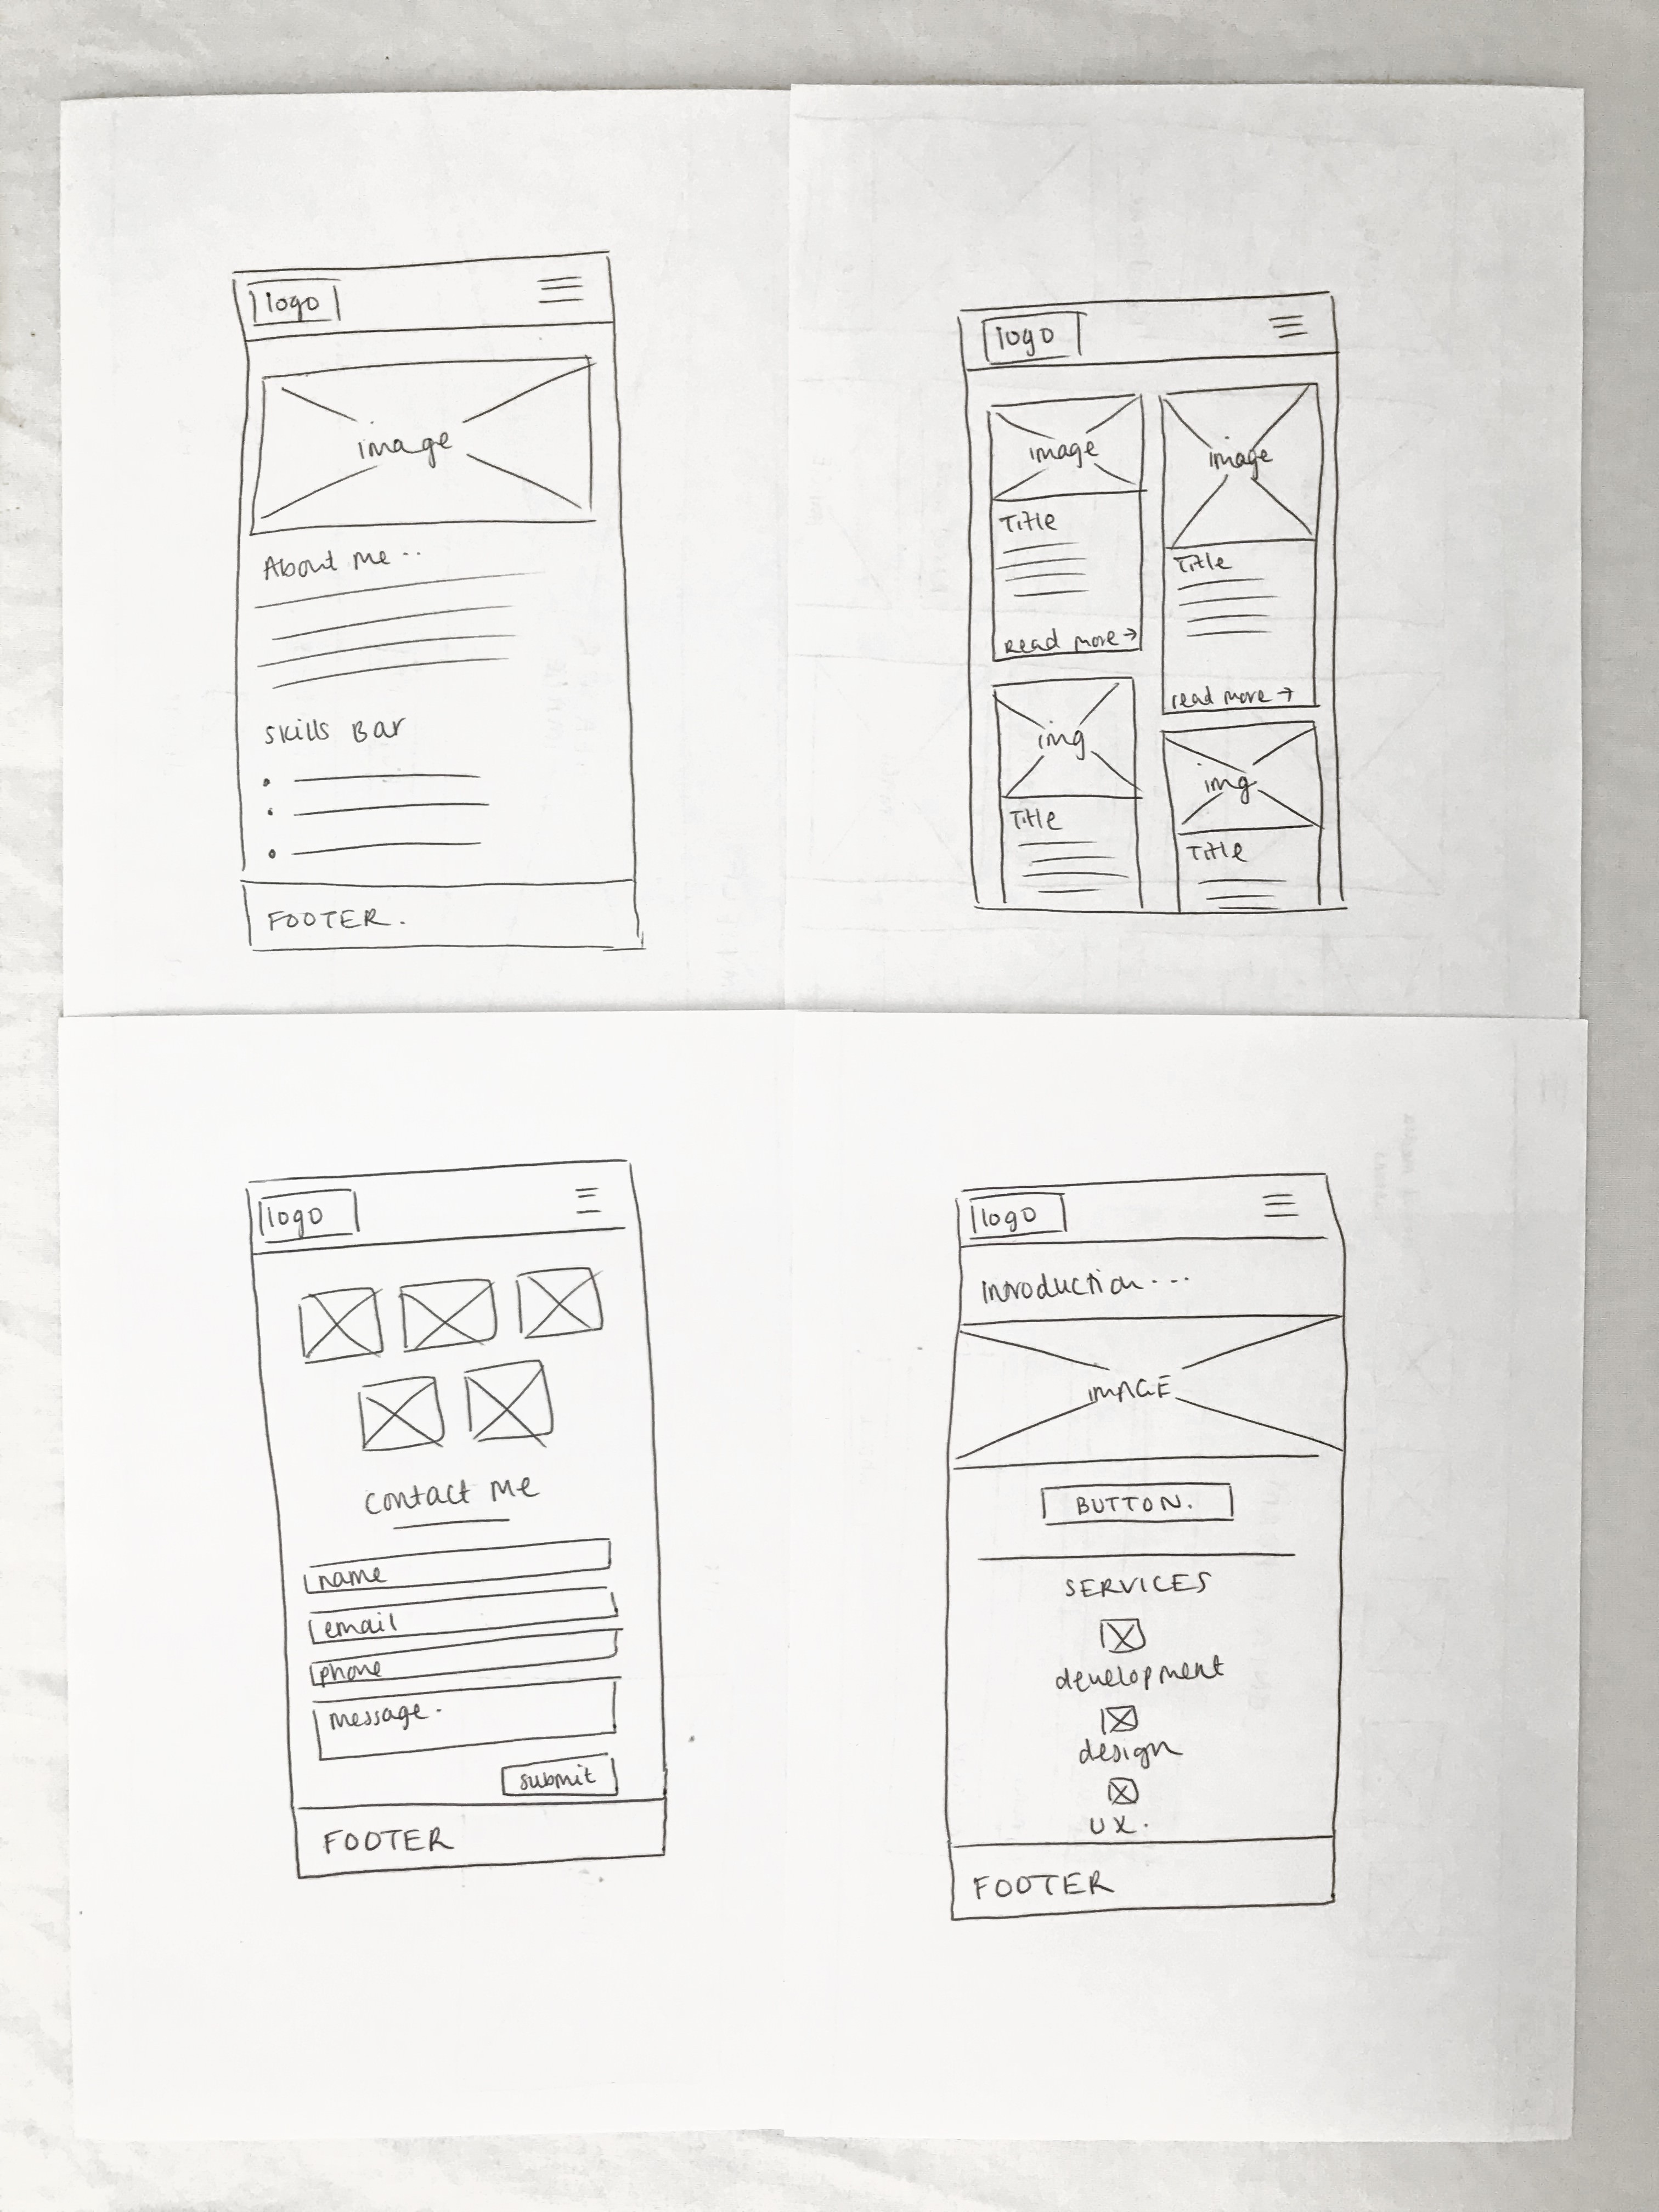 logo
image
About me..
Skills Bar
FOOTER.
logo
image
Title
read more →
image
Title
read more →
img
Title
img
Title
logo
contact me
name
email
phone
message.
submit
FOOTER
logo
introduction...
IMAGE
BUTTON.
SERVICES
development
design
UX.
FOOTER